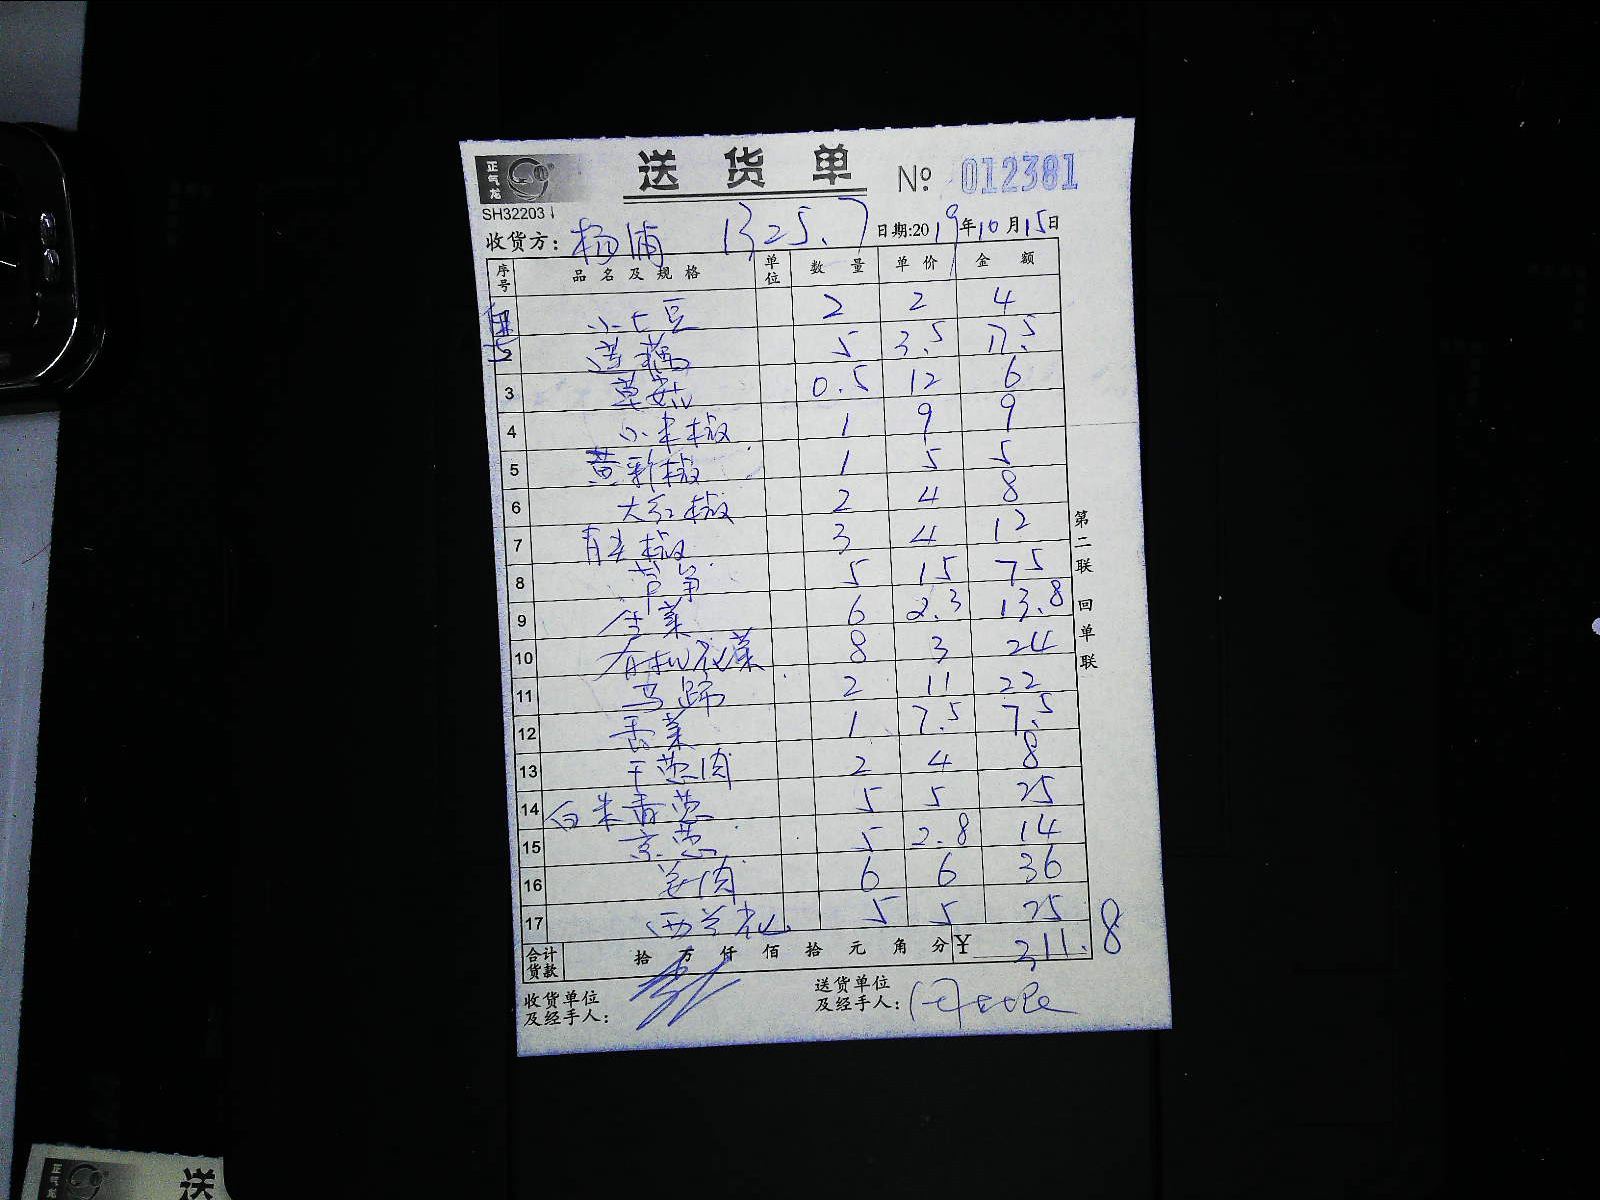 正气龙
送货单 № 012381
SH32203
收货方: 杨浦 1325.7 日期:2019年10月15日
序号 品名及规格 单位 数量 单价 金额
小土豆 2 2 4
2 莲藕 5 3.5 17.5
3 草菇 0.5 12 6
4 小米椒 1 9 9
5 黄彩椒 1 5 5
6 大红椒 2 4 8
7 青尖椒 3 4 12
8 芦笋 5 15 75
9 生菜 6 2.3 13.8
10 有机花菜 8 3 24
11 马蹄 2 11 22
12 香菜 1 7.5 7.5
13 干葱肉 2 4 8
14 白米香葱 5 5 25
15 京葱 5 2.8 14
16 姜肉 6 6 36
17 西兰花 5 5 25
合计货款 拾 万 仟 佰 拾 元 角 分 ¥ 311.8
收货单位及经手人:
送货单位及经手人:
第二联 回单联
正气龙
送